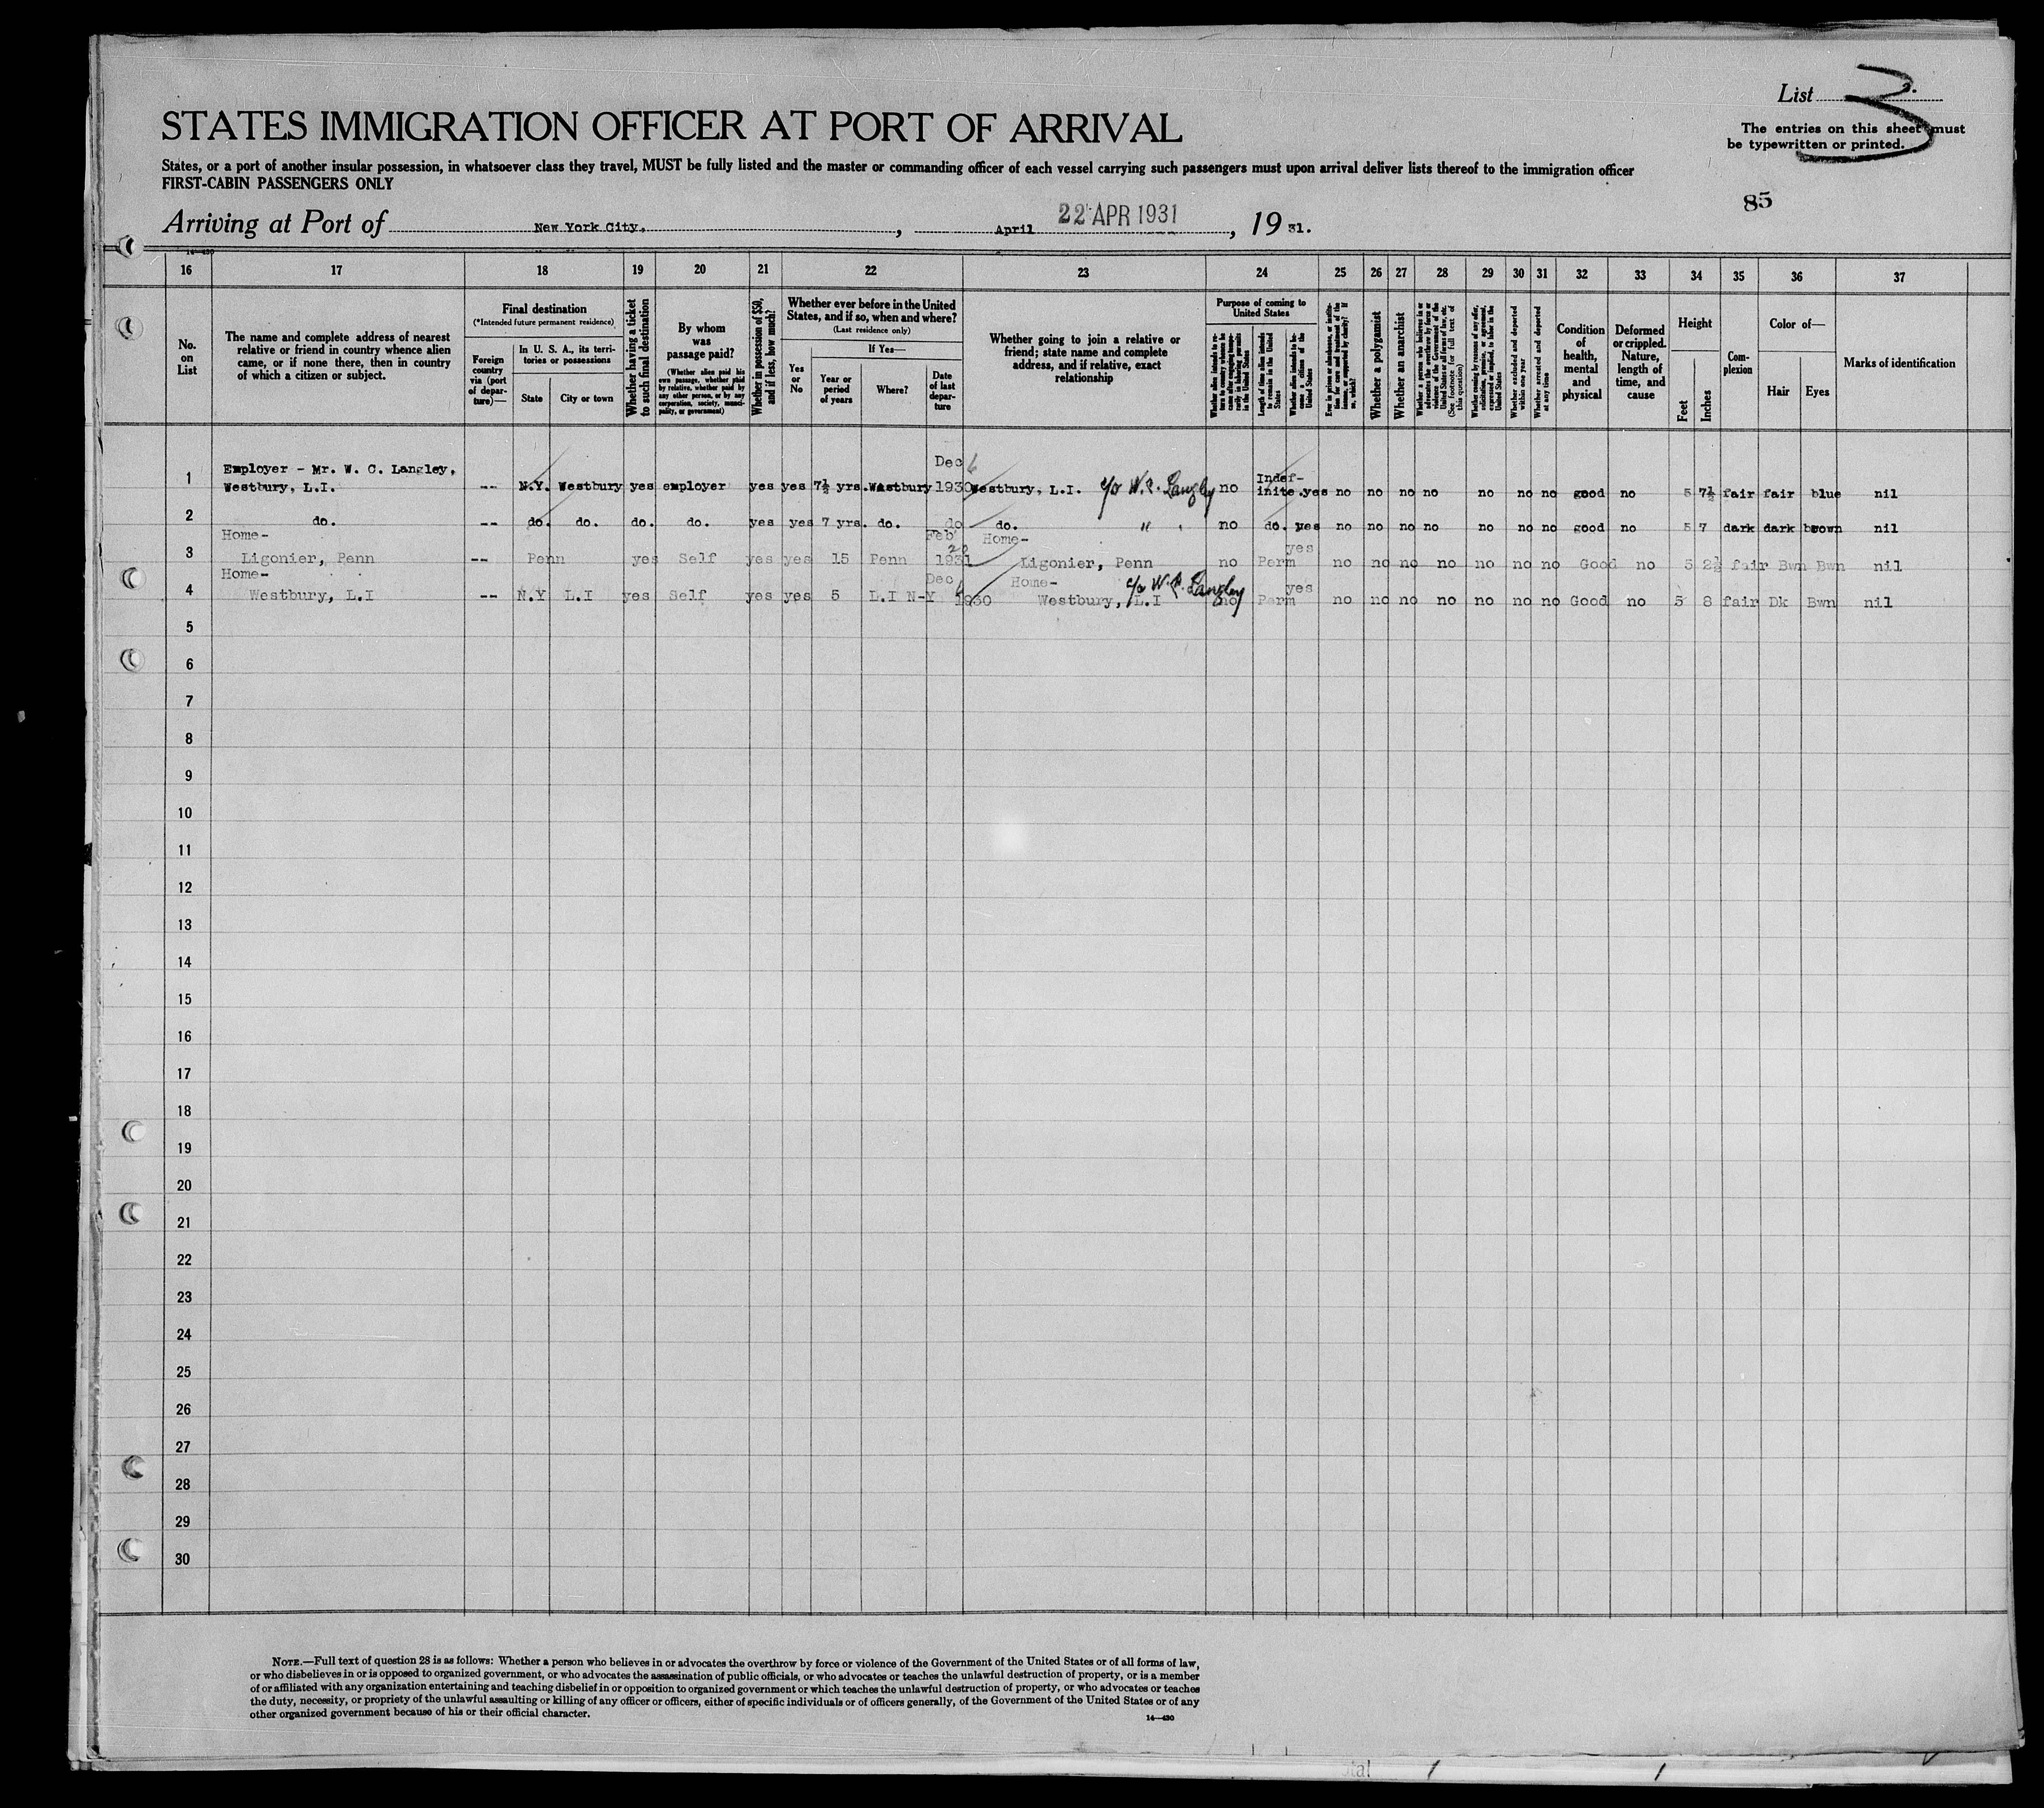 List 3.
STATES IMMIGRATION OFFICER AT PORT OF ARRIVAL
The entries on this sheet must
be typewritten or printed.
States, or a port of another insular possession, in whatsoever class they travel, MUST be fully listed and the master or commanding officer of each vessel carrying such passengers must upon arrival deliver lists thereof to the immigration officer
FIRST-CABIN PASSENGERS ONLY
85
Arriving at Port of New York City, , April 22 APR 1931 , 19 31.
14—430
16 17 18 19 20 21 22 23 24 25 26 27 28 29 30 31 32 33 34 35 36 37
No. on List
The name and complete address of nearest relative or friend in country whence alien came, or if none there, then in country of which a citizen or subject.
Final destination
(*Intended future permanent residence)
Foreign country via (port of departure)—
In U. S. A., its territories or possessions
State
City or town
Whether having a ticket to such final destination
By whom was passage paid?
(Whether alien paid his own passage, whether paid by relative, whether paid by any other person, or by any corporation, society, municipality, or government)
Whether in possession of $50, and if less, how much?
Whether ever before in the United States, and if so, when and where?
(Last residence only)
Yes or No
If Yes—
Year or period of years
Where?
Date of last departure
Whether going to join a relative or friend; state name and complete address, and if relative, exact relationship
Purpose of coming to United States
Whether alien intends to return to country whence he came after engaging temporarily in laboring pursuits in the United States
Length of time alien intends to remain in the United States
Whether alien intends to become a citizen of the United States
Ever in prison or almshouse, or institution for care and treatment of the insane, or supported by charity? If so, which?
Whether a polygamist
Whether an anarchist
Whether a person who believes in or advocates the overthrow by force or violence of the Government of the United States or all forms of law, etc. (See footnote for full text of this question)
Whether coming by reason of any offer, solicitation, promise, or agreement, expressed or implied, to labor in the United States
Whether excluded and deported within one year
Whether arrested and deported at any time
Condition of health, mental and physical
Deformed or crippled. Nature, length of time, and cause
Height
Feet
Inches
Complexion
Color of—
Hair
Eyes
Marks of identification
1 Employer - Mr. W. C. Langley, Westbury, L.I. -- N.Y. Westbury yes employer yes yes 7½ yrs. Westbury Dec 6 1930 Westbury, L.I. c/o W. C. Langley no Indef-inite. yes no no no no no no no good no 5 7½ fair fair blue nil
2 do. -- do. do. do. do. yes yes 7 yrs. do. do do. " " no do. yes no no no no no no no good no 5 7 dark dark brown nil
3 Home- Ligonier, Penn -- Penn yes Self yes yes 15 Penn Feb 20 1931 Home- Ligonier, Penn no Perm yes no no no no no no no Good no 5 2½ fair Bwn Bwn nil
4 Home- Westbury, L.I -- N.Y L.I yes Self yes yes 5 L.I N-Y Dec 6 1930 Home- Westbury, L.I c/o W. C. Langley no Perm yes no no no no no no no Good no 5 8 fair Dk Bwn nil
5
6
7
8
9
10
11
12
13
14
15
16
17
18
19
20
21
22
23
24
25
26
27
28
29
30
NOTE.—Full text of question 28 is as follows: Whether a person who believes in or advocates the overthrow by force or violence of the Government of the United States or of all forms of law,
or who disbelieves in or is opposed to organized government, or who advocates the assassination of public officials, or who advocates or teaches the unlawful destruction of property, or is a member
of or affiliated with any organization entertaining and teaching disbelief in or opposition to organized government or which teaches the unlawful destruction of property, or who advocates or teaches
the duty, necessity, or propriety of the unlawful assaulting or killing of any officer or officers, either of specific individuals or of officers generally, of the Government of the United States or of any
other organized government because of his or their official character.
14—430